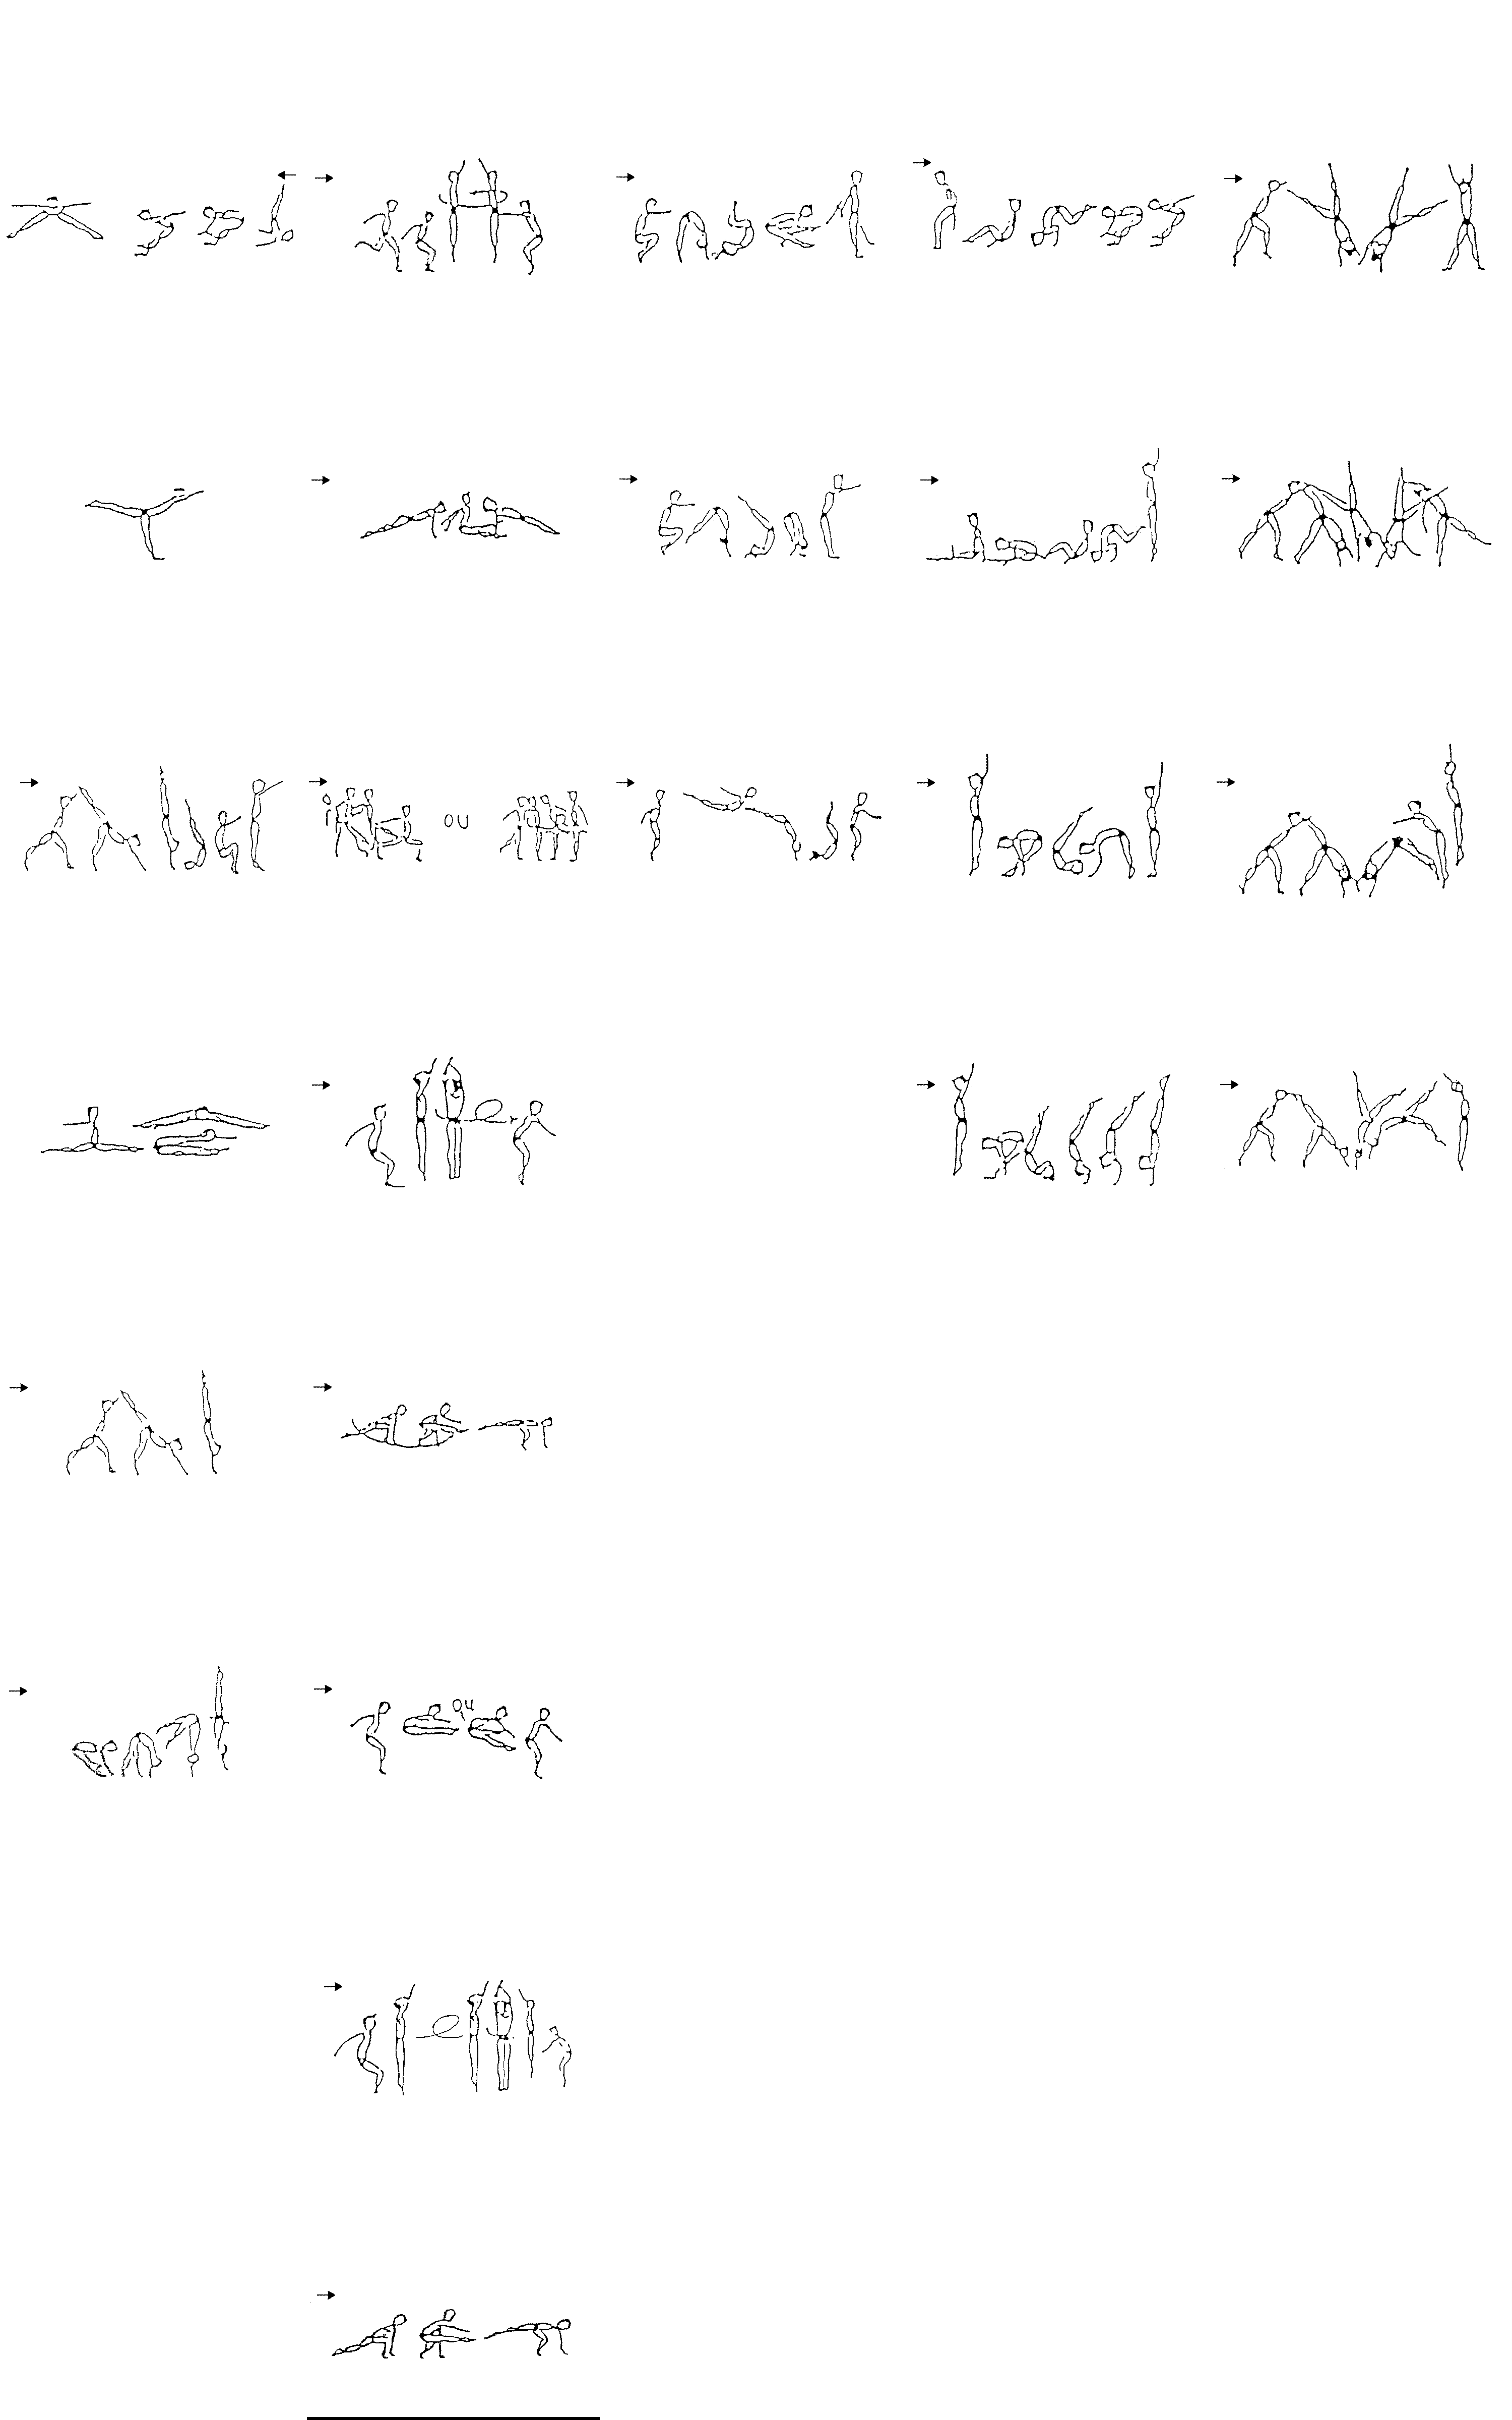 OU
OU